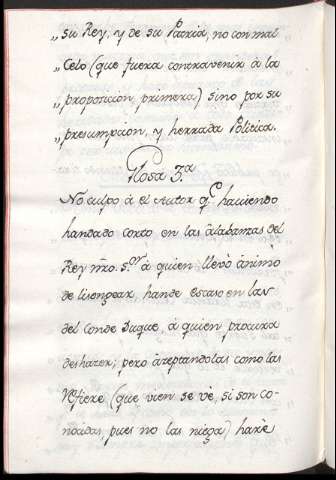 „su Rey, y de su Patria, no con mal
„Celo (que fuera contravenir à la
„proposicion primera) sino por su
„presumpcion, y herrada Politica.
Glosa 3.ª
No culpo à el Autor q.e haviendo
handado corto en las alabanzas del
Rey nro. S.or à quien llevò ànimo
de lisongear, hande escaso en las
del Conde Duque, à quien procura
deshazer; pero àzeptandolas como las
Refiere (que vien se vè, si son co-
nozidas, pues no las niega) harè